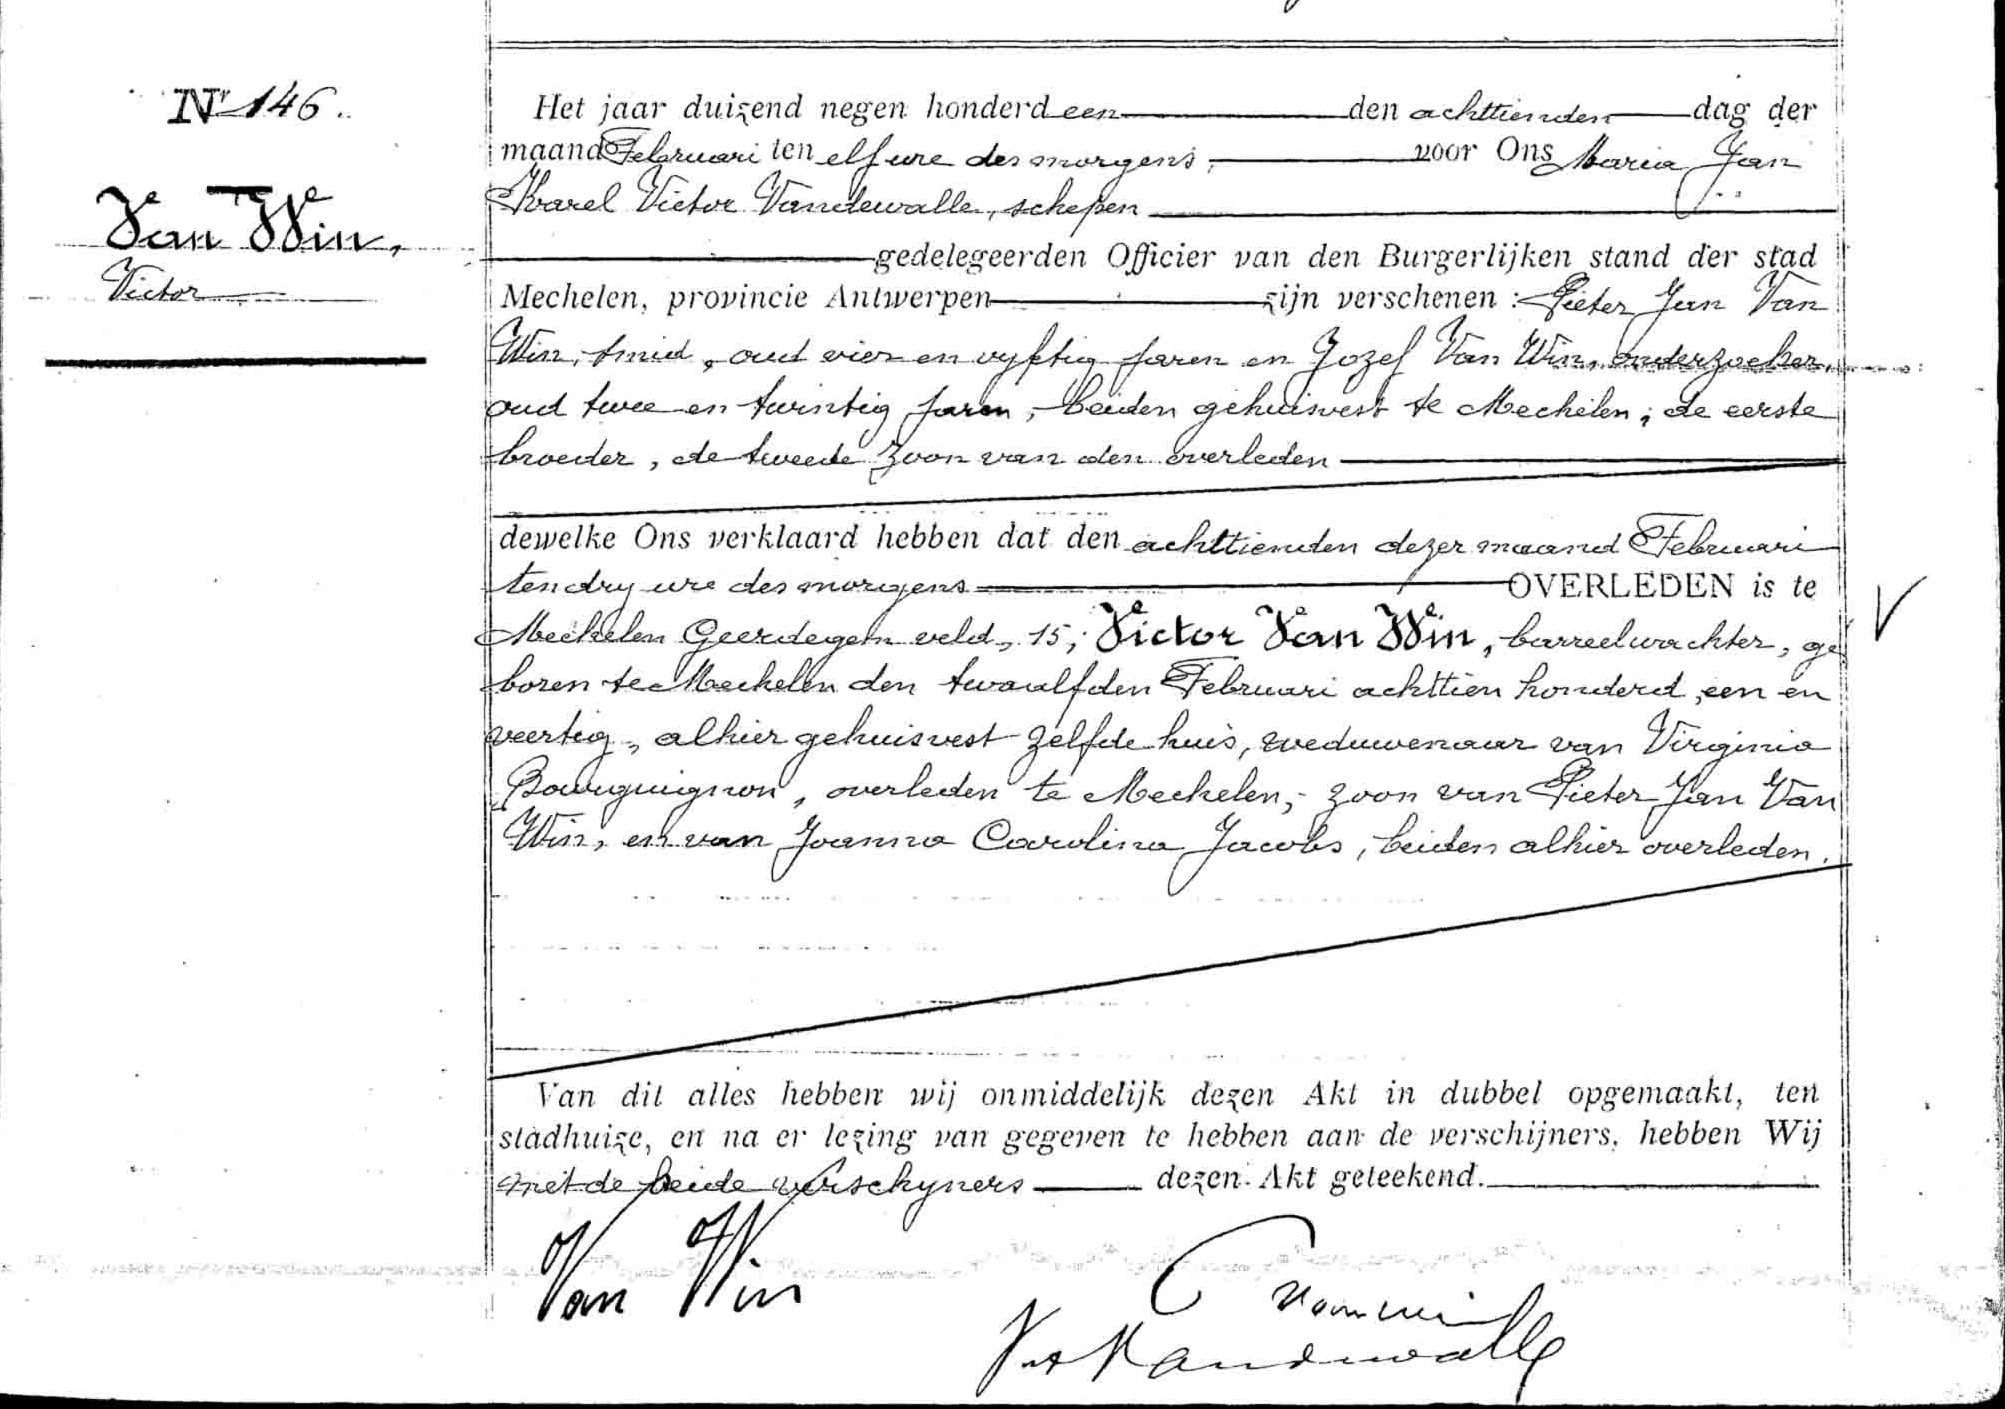 Nr 146.
Van Win,
Victor
Het jaar duizend negen honderd een den achttienden dag der
maand Februari ten elf ure des morgens, voor Ons Maria Jan
Karel Victor Vandewalle, schepen
gedelegeerden Officier van den Burgerlijken stand der stad
Mechelen, provincie Antwerpen zijn verschenen : Pieter Jan Van
Win, smid, oud vier en vyftig jaren en Jozef Van Win, onderzoeker,
oud twee en twintig jaren, beiden gehuisvest te Mechelen, de eerste
broeder, de tweede zoon van den overleden
dewelke Ons verklaard hebben dat den achttienden dezer maand Februari
ten dry ure des morgens OVERLEDEN is te
Mechelen Geerdegem veld, 15, Victor Van Win, barreelwachter, ge
boren te Mechelen den twaalfden Februari achttien honderd, een en
veertig, alhier gehuisvest zelfde huis, weduwenaar van Virginia
Bourguignon, overleden te Mechelen, zoon van Pieter Jan Van
Win, en van Joanna Carolina Jacobs, beiden alhier overleden.
Van dit alles hebben wij onmiddelijk dezen Akt in dubbel opgemaakt, ten
stadhuize, en na er lezing van gegeven te hebben aan de verschijners, hebben Wij
met de beide verschyners dezen Akt geteekend.
Van Win
Vandewalle